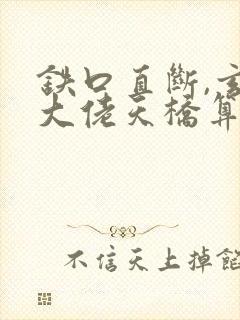 鉄口直斷,玄
大佬天橋算
不信天上掉餡